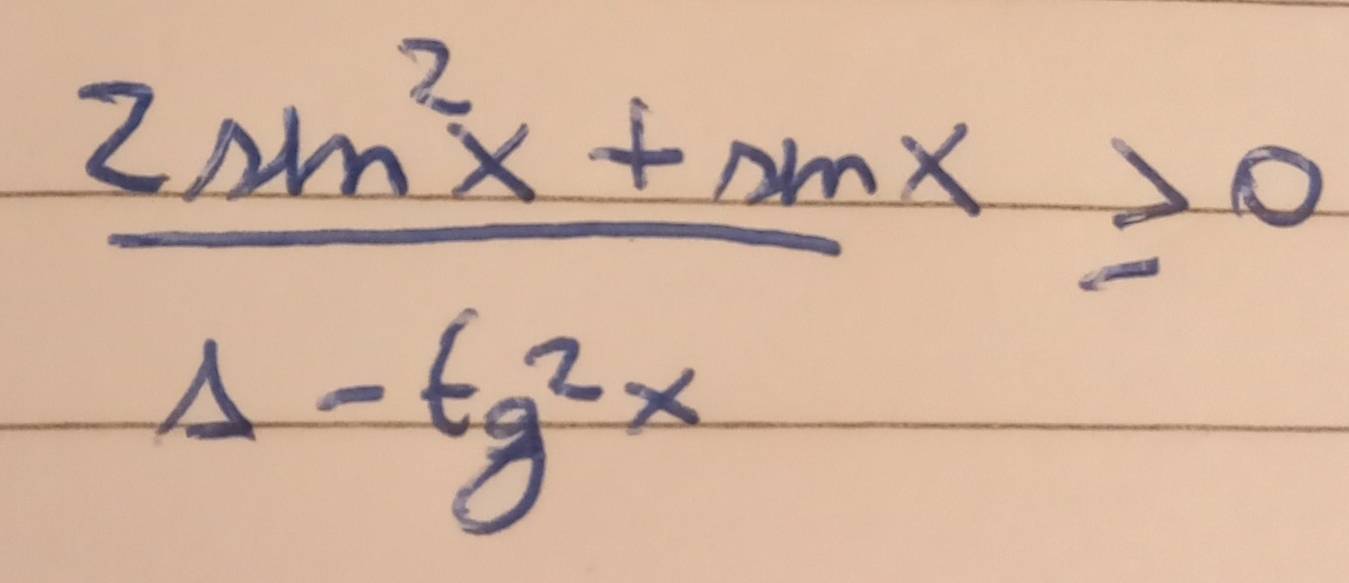 2 sin²x + sin x ≥ 0
1 - tg²x